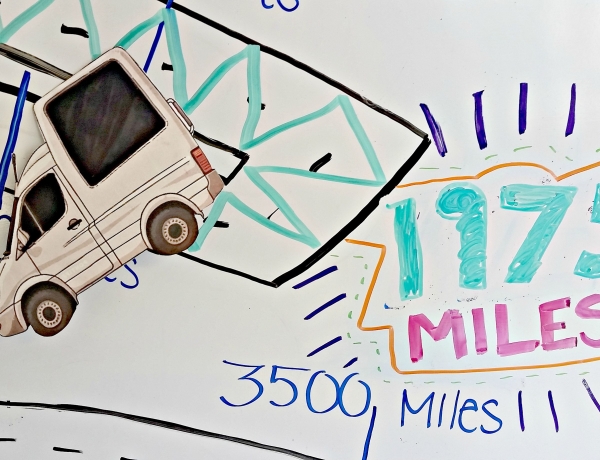 to
1975
MILES
3500 Miles